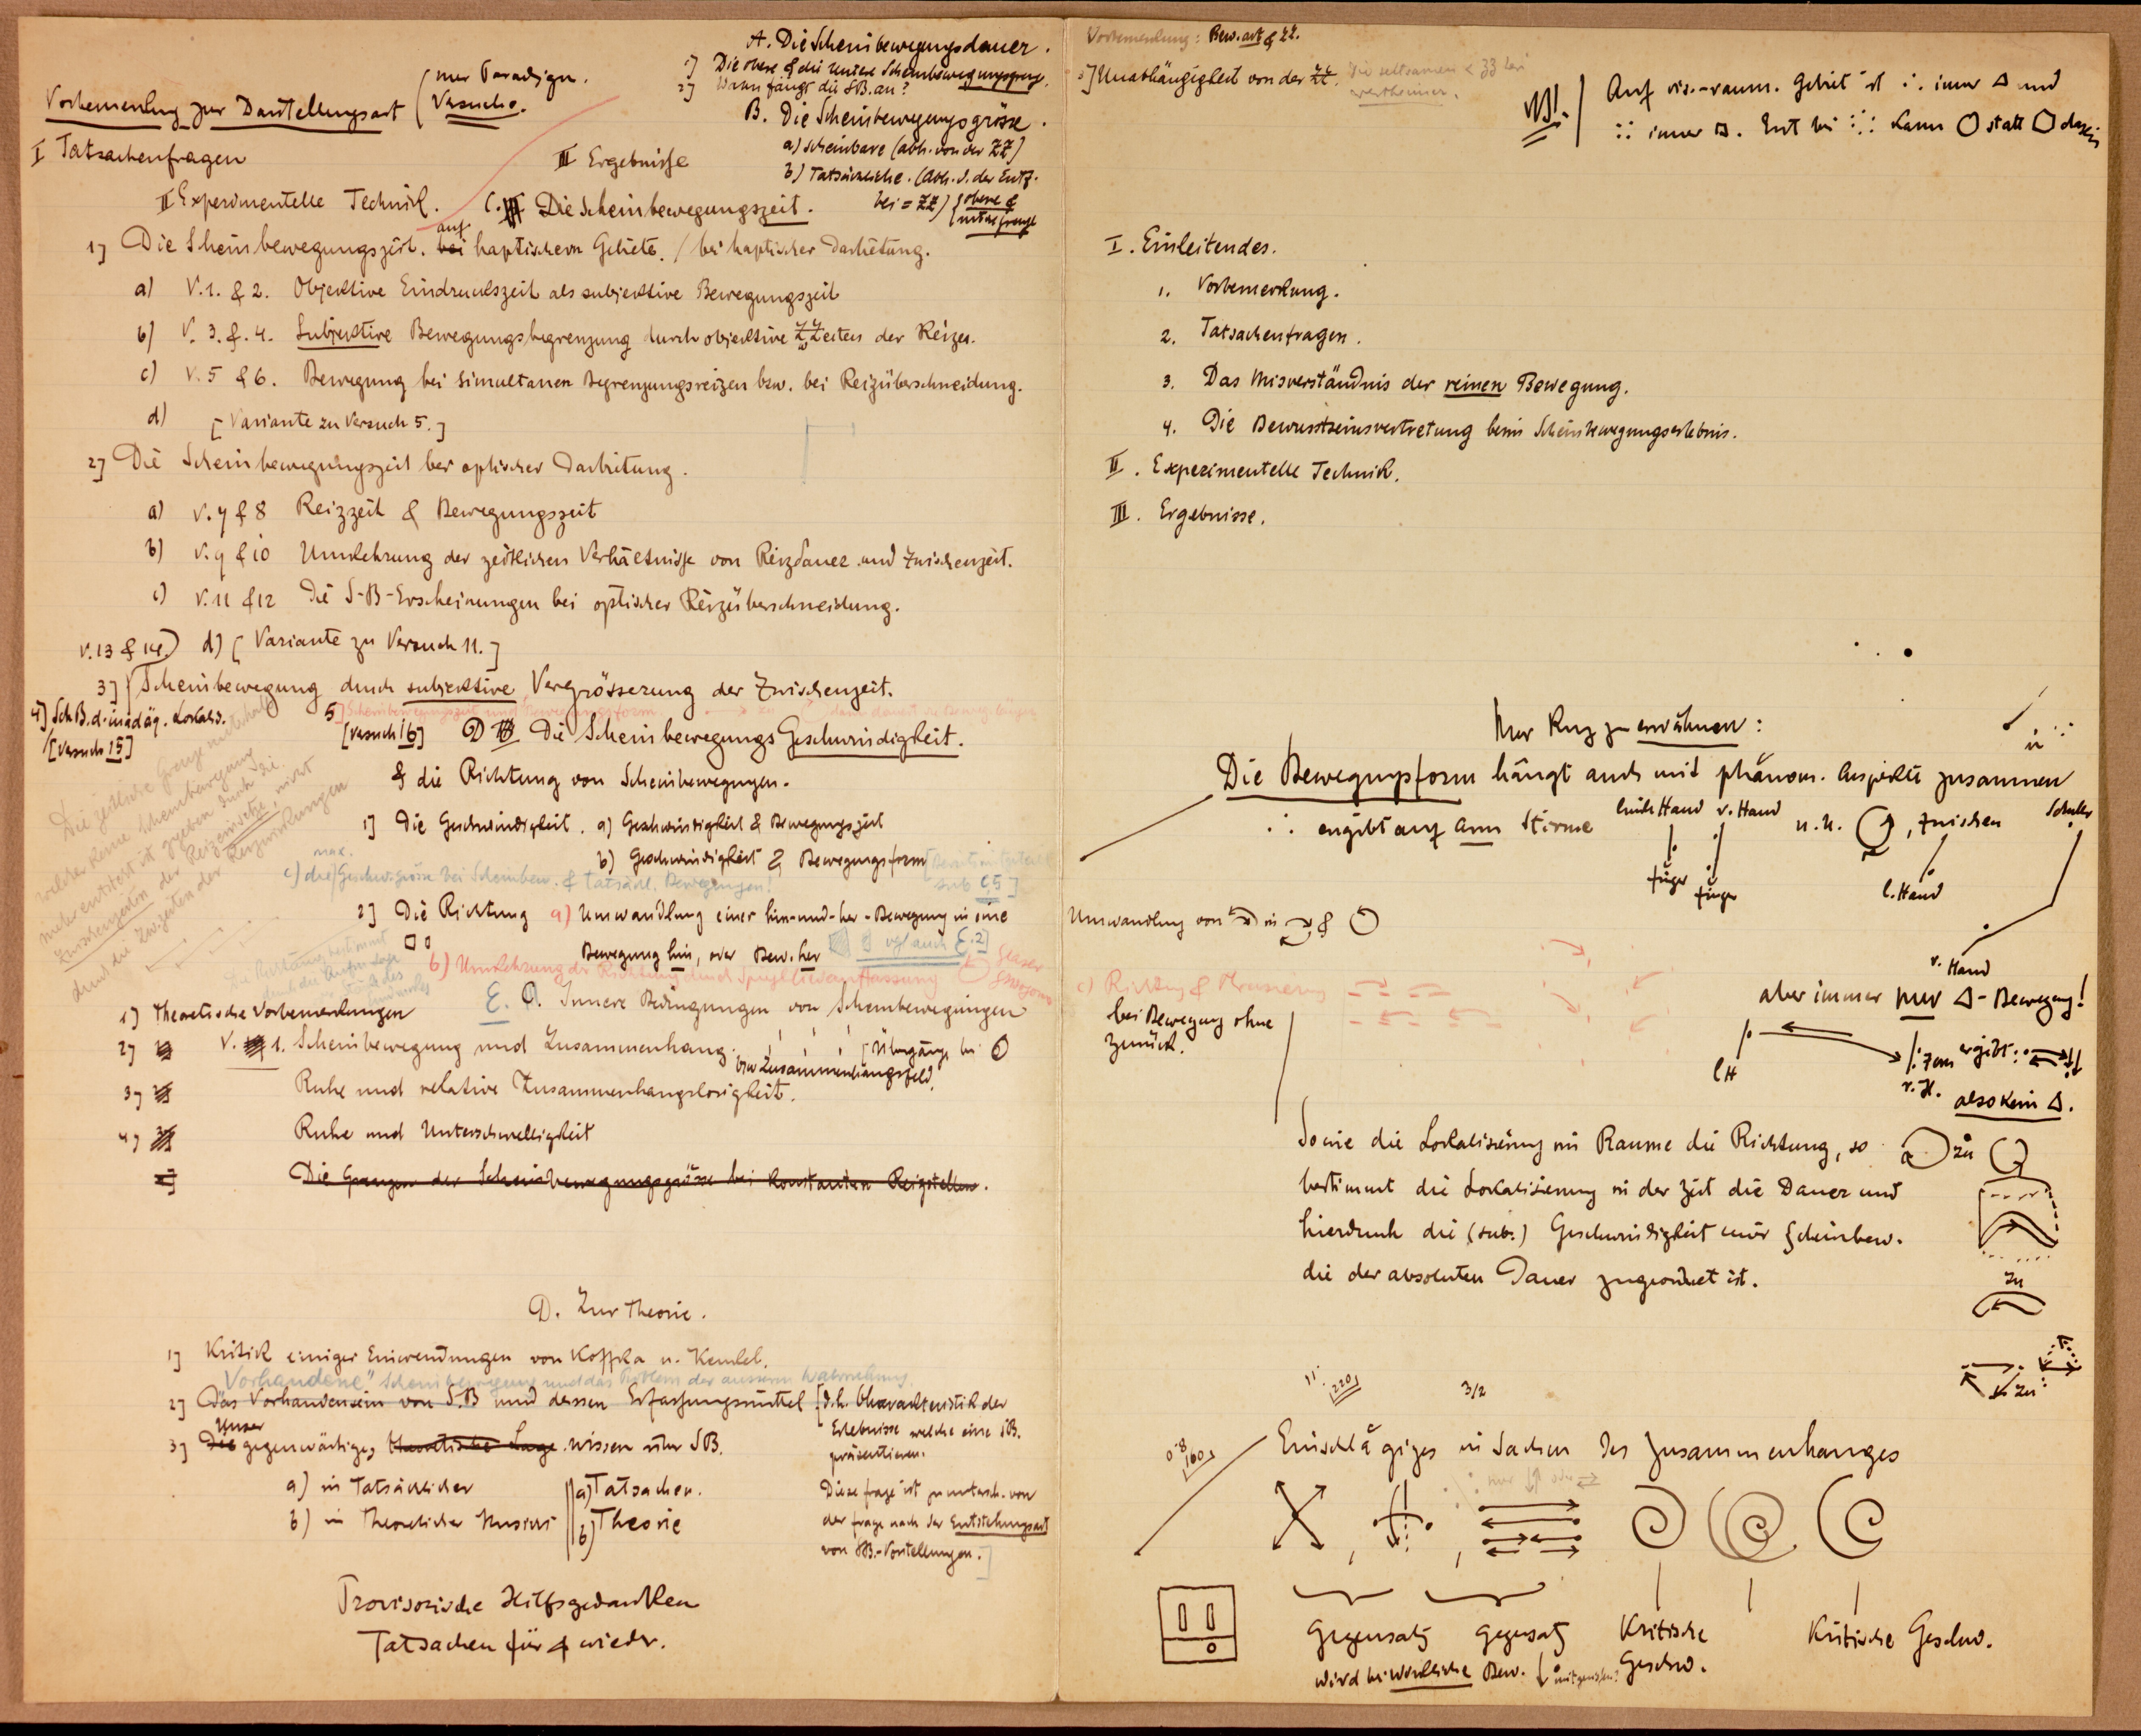 A. Die Scheinbewegungsdauer.
1] Die obere & die untere Scheinbewegungsgrenze.
2] Wann fängt die SB. an?
B. Die Scheinbewegungsgrösse.
a) scheinbare (abh. von der ZZ)
b) Tatsächliche. (Abh. v. der Entf.
bei = ZZ) { obere &
untere Grenze
Vorbemerkung zur Darstellungsart ( nur Paradigm.
Versuche.
I Tatsachenfragen
III Ergebnisse
II Experimentelle Technik.
C. Die Scheinbewegungszeit.
1] Die Scheinbewegungszeit. bei auf haptischem Gebiete. / bei haptischer Darbietung.
a) V.1. & 2. Objektive Eindruckszeit als subjektive Bewegungszeit
b) V. 3. & 4. Subjektive Bewegungsbegrenzung durch objektive ZZeiten der Reize.
c) V. 5 & 6. Bewegung bei simultanen Begrenzungsreizen bzw. bei Reizüberschneidung.
d) [Variante zu Versuch 5.]
2] Die Scheinbewegungszeit bei optischer Darbietung.
a) V. 7 & 8 Reizzeit & Bewegungszeit
b) V. 9 & 10 Umkehrung der zeitlichen Verhältnisse von Reizdauer und Zwischenzeit.
c) V. 11 & 12 Die S-B-Erscheinungen bei optischer Reizüberschneidung.
V. 13 & 14) d) [Variante zu Versuch 11.]
3] Scheinbewegung durch subjektive Vergrösserung der Zwischenzeit.
4] Sch B. d. inadäq. Lokalis.
[Versuch 15]
5] Scheinbewegungszeit und Bewegungsform.
[Versuch 16]
D Die Scheinbewegungs Geschwindigkeit.
& die Richtung von Scheinbewegungen.
1] Die Geschwindigkeit. a) Geschwindigkeit & Bewegungszeit
b) Geschwindigkeit & Bewegungsform
sub C5]
c) die max. Geschw.grösse bei Scheinbew. & tatsächl. Bewegungen!
2] Die Richtung a) Umwandlung einer hin-und-her-Bewegung in eine
Bewegung hin, oder Bew. her
vgl auch E.2]
b) Umkehrung der Richtung durch Spiegelbildauffassung
Die zeitliche Grenze
welcher keine Scheinbewegung
mehr entsteht ist gegeben durch die
Zwischenzeiten der Reizeinsätze, nicht
durch die Zw.zeiten der Reizwirkungen
E. Innere Bedingungen von Scheinbewegungen
1] Theoretische Vorbemerkungen
2] V. 1. Scheinbewegung und Zusammenhang.
bzw Zusammenhangsfeld.
[Übergänge bei
3] Ruhe und relative Zusammenhangslosigkeit.
4] Ruhe und Unterschwelligkeit
Die Grenzen der Scheinbewegungsgrösse bei konstanten Reizstellen.
D. Zur Theorie.
1] Kritik einiger Einwendungen von Koffka u. Kenkel.
"Vorhandene" Scheinbewegung und das Problem der äusseren Wahrnehmung.
2] Das Vorhandensein von S.B und dessen Erfassungsmittel [d.h. Charakteristik der
Erlebnisse welche eine SB.
präsentieren.
3] Die Unser gegenwärtiges theoretische Lage wissen über SB.
a) in Tatsächlicher
b) in Theoretischer Hinsicht
a) Tatsachen.
b) Theorie
Diese Frage ist zu untersch. von
der Frage nach der Entstehungsart
von SB.-Vorstellungen.]
Provisorische Hilfsgedanken
Tatsachen für & wieder.
Vorbemerkung: Bew.art & ZZ.
3] Unabhängigkeit von der ZZ.
Wertheimer.
NB! Auf vis.-räum. Gebiet ist ∴ immer △ und
∷ immer □. Erst bei kann ○ statt ⬠ dasein
I. Einleitendes.
1. Vorbemerkung.
2. Tatsachenfragen.
3. Das Misverständnis der reinen Bewegung.
4. Die Bewusstseinsvertretung beim Scheinbewegungserlebnis.
II. Experimentelle Technik.
III. Ergebnisse.
Nur kurz zu erwähnen:
Die Bewegungsform hängt auch mit phänom. Aspekte zusammen
∴ ergibt auf Arm Stirne
linke Hand r. Hand
u. u. , zwischen
Schulter
Finger
Finger
l. Hand
r. Hand
Umwandlung von in &
c) Richtung &
bei Bewegung ohne
zurück.
aber immer nur △-Bewegung!
l H
r. H.
ergibt:
also kein △.
Sowie die Lokalisierung im Raume die Richtung, so
bestimmt die Lokalisierung in der Zeit die Dauer und
hierdurch die (sub.) Geschwindigkeit einer Scheinbew.
die der absoluten Dauer zugeordnet ist.
zu
zu
zu
220
3/2
0.8
160
Einschlägiges in Sachen des Zusammenhanges
nur ↓↑ oder ⇄
Gegensatz
Gegensatz
Kritische
Geschw.
Kritische Geschw.
wird bei wirkliche Bew.